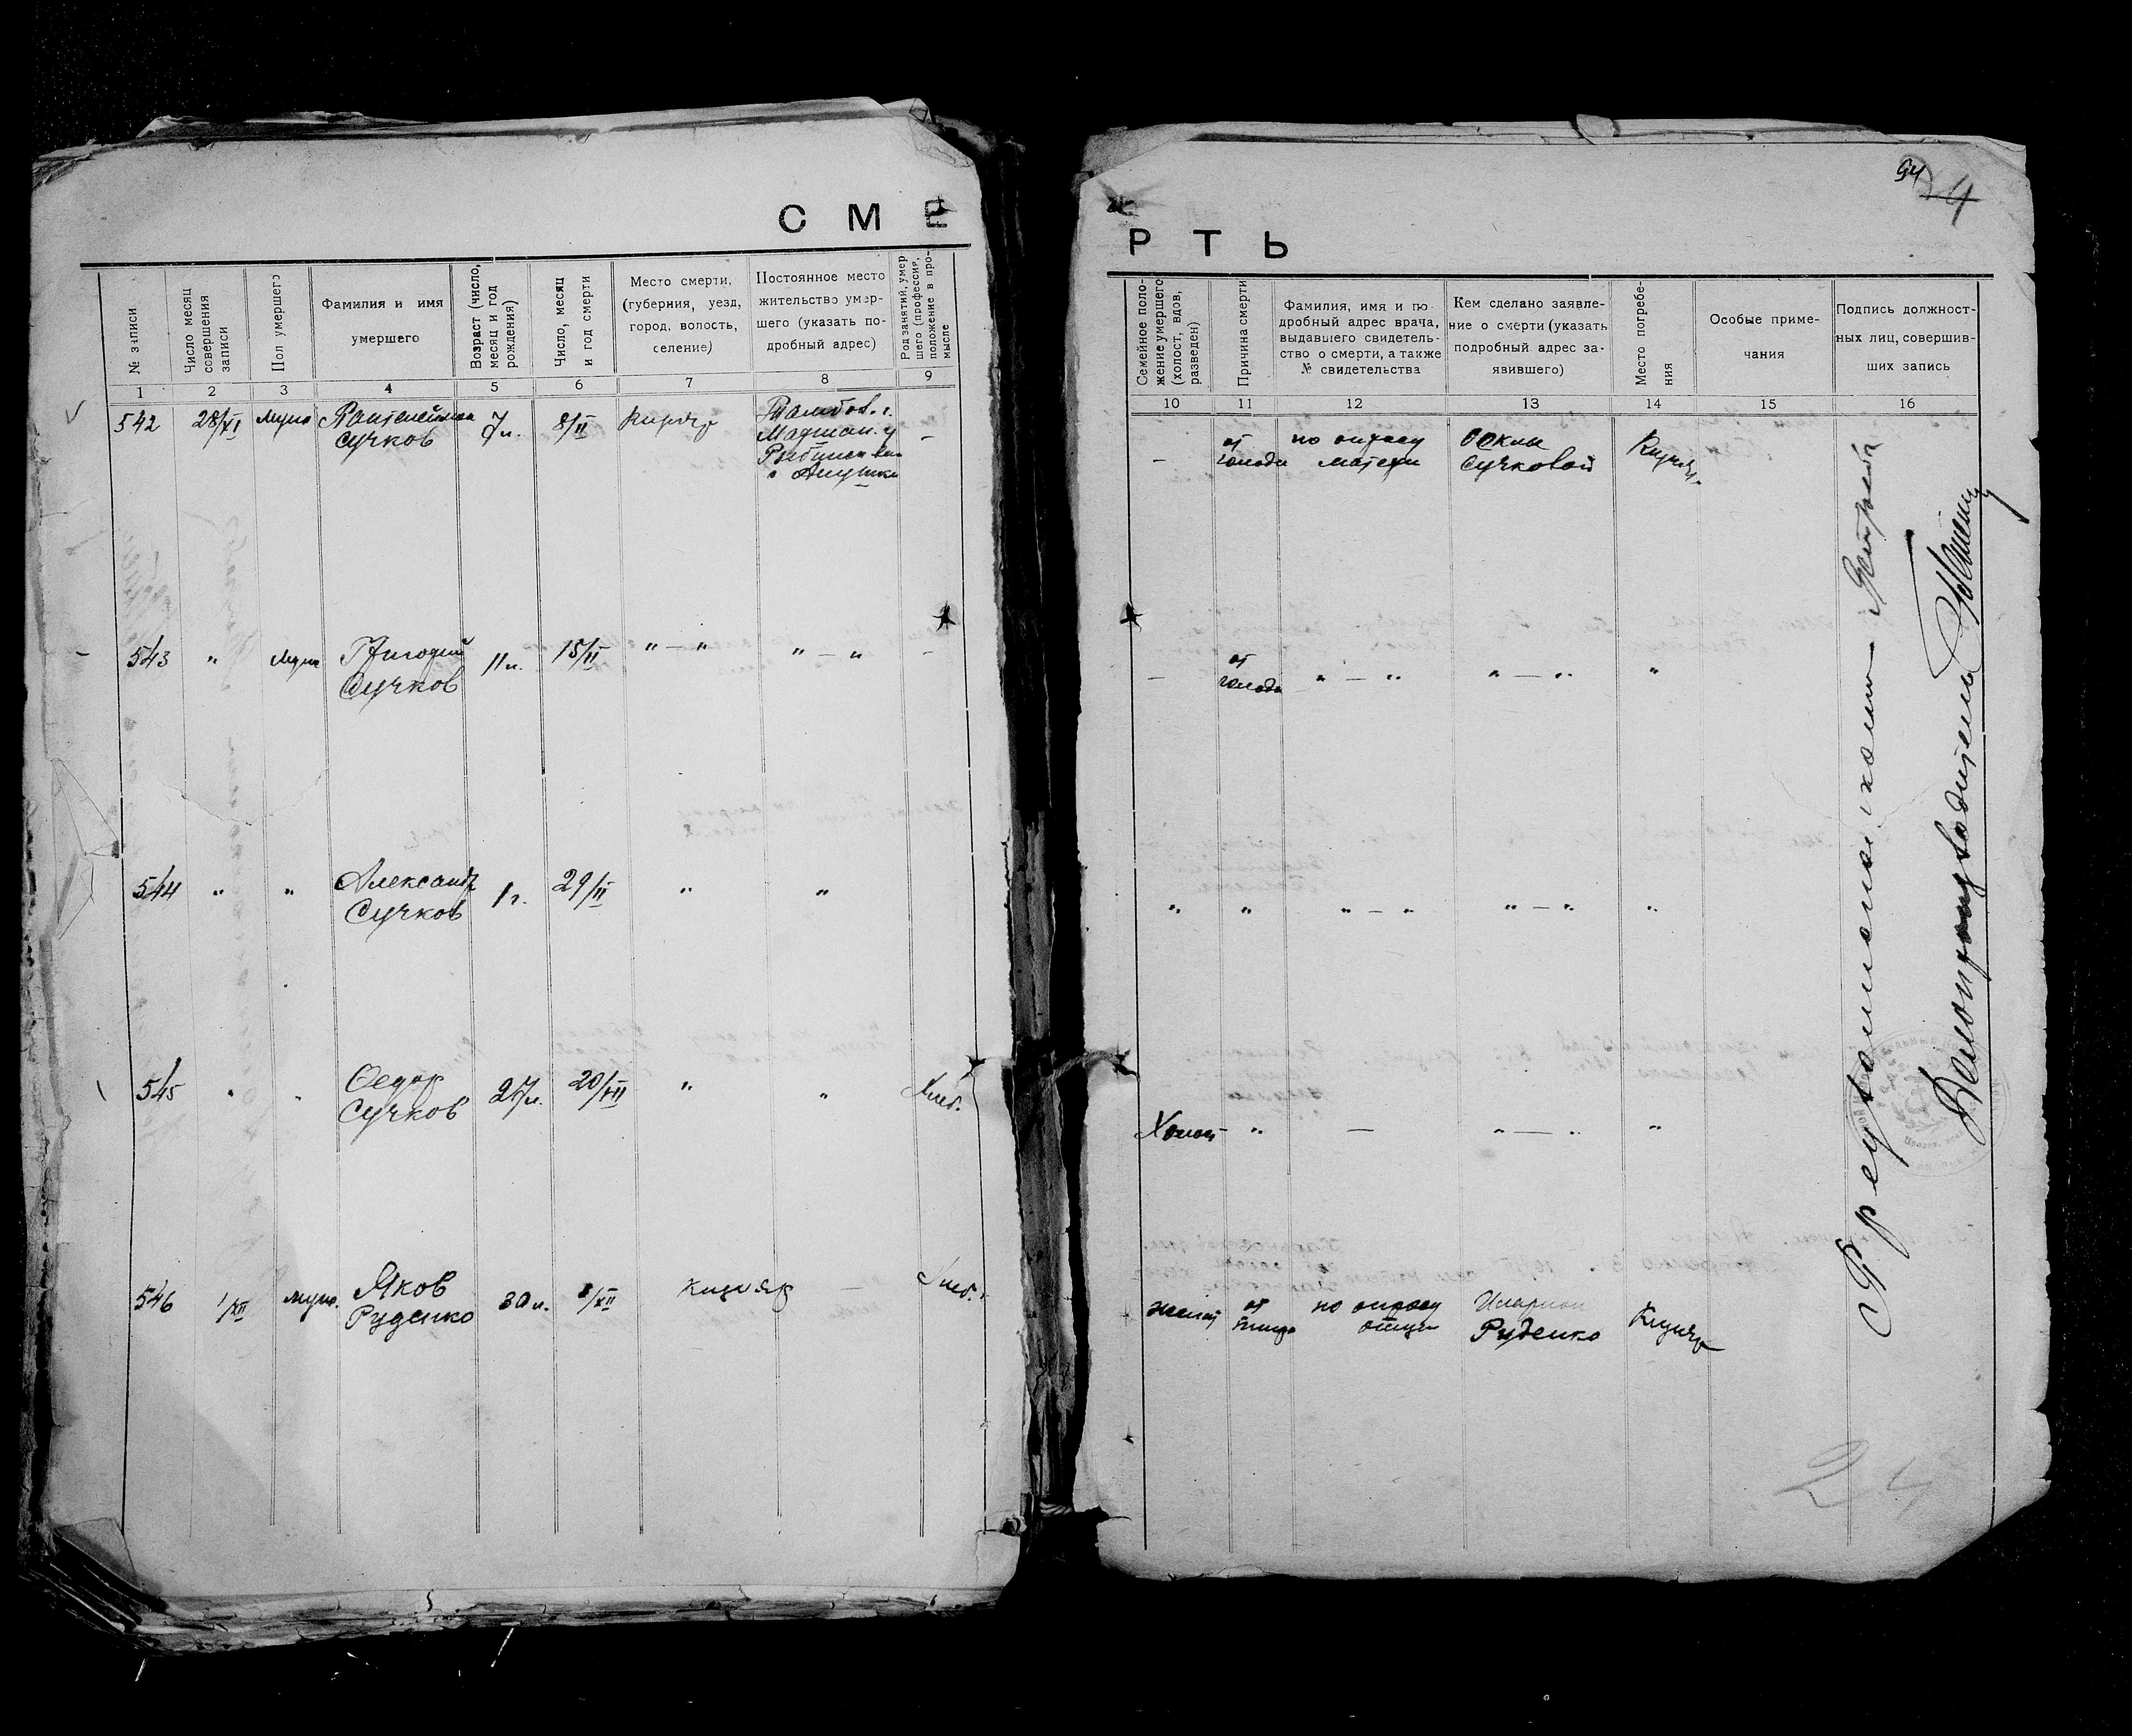 94
4
СМЕРТЬ
№ записи
Число месяц совершения записи
Пол умершего
Фамилия и имя умершего
Возраст (число, месяц и год рождения)
Число, месяц и год смерти
Место смерти, (губерния, уезд, город, волость, селение)
Постоянное место жительство умершего (указать подробный адрес)
Род занятий, умершего (профессия, положение в промысле
Семейное положение умершего (холост, вдов, разведен)
Причина смерти
Фамилия, имя и подробный адрес врача, выдавшего свидетельство о смерти, а также № свидетельства
Кем сделано заявление о смерти (указать подробный адрес заявившего)
Место погребения
Особые примечания
Подпись должностных лиц, совершивших запись
1 2 3 4 5 6 7 8 9 10 11 12 13 14 15 16
542 28/XI Муж Пантелеймон 7 л. 8/II Кизляр Тамбов. г.
Сучков
с
—
— от голода по опросу матери
Сучковой Кизляр.
543 " Муж Григорий 11 л. 15/II " — " " — " —
Сучков
— от голода " — " " — " "
544 " " Александр 1 г. 29/II " "
Сучков
" " " — " " — " "
545 " " Федор 25 л. 20/XII " " Хлеб.
Сучков
Холост " — " — " "
546 1/XII муж. Яков 30 л. 1/XII Кизляр — Хлеб.
Руденко
женат от тифа по опросу отца Иларион Руденко Кизляр
Делопроизводитель
24